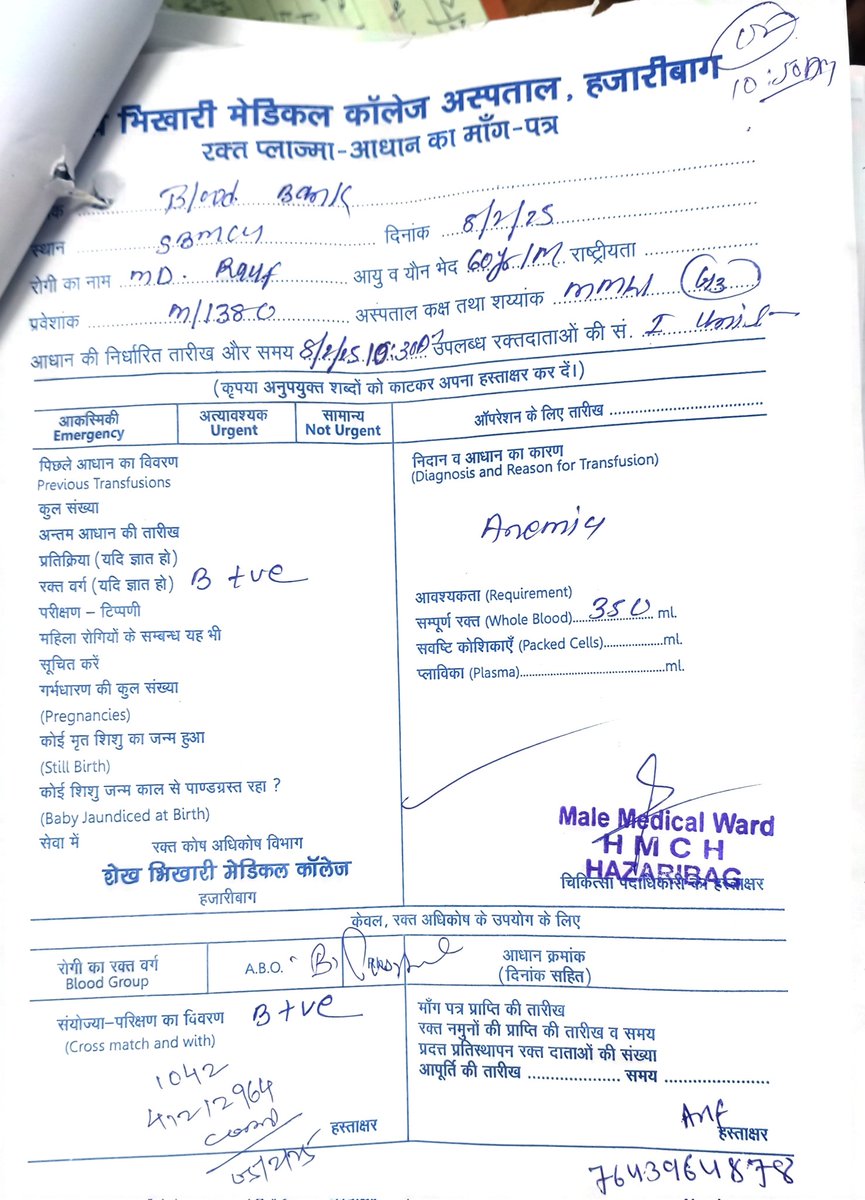 भिखारी मेडिकल कॉलेज अस्पताल, हजारीबाग
10:50
रक्त प्लाज्मा-आधान का माँग-पत्र
Blood Bank
स्थान SBMCH दिनांक 8/2/25
रोगी का नाम MD. Rauf आयु व यौन भेद 60yr/M राष्ट्रीयता
प्रवेशांक M/1380 अस्पताल कक्ष तथा शय्यांक MMW G13
आधान की निर्धारित तारीख और समय 8/2/25 उपलब्ध रक्तदाताओं की सं. I Unit
(कृपया अनुपयुक्त शब्दों को काटकर अपना हस्ताक्षर कर दें।)
आकस्मिकी अत्यावश्यक सामान्य ऑपरेशन के लिए तारीख
Emergency Urgent Not Urgent
पिछले आधान का विवरण
Previous Transfusions
कुल संख्या
अन्तम आधान की तारीख
प्रतिक्रिया (यदि ज्ञात हो)
रक्त वर्ग (यदि ज्ञात हो) B +ve
परीक्षण – टिप्पणी
महिला रोगियों के सम्बन्ध यह भी
सूचित करें
गर्भधारण की कुल संख्या
(Pregnancies)
कोई मृत शिशु का जन्म हुआ
(Still Birth)
कोई शिशु जन्म काल से पाण्डग्रस्त रहा ?
(Baby Jaundiced at Birth)
सेवा में रक्त कोष अधिकोष विभाग
शेख भिखारी मेडिकल कॉलेज
हजारीबाग
निदान व आधान का कारण
(Diagnosis and Reason for Transfusion)
Anemia
आवश्यकता (Requirement)
सम्पूर्ण रक्त (Whole Blood) 350 ml.
सवष्टि कोशिकाएँ (Packed Cells) ml.
प्लाविका (Plasma) ml.
Male Medical Ward
H M C H
HAZARIBAG
चिकित्सा पदाधिकारी का हस्ताक्षर
केवल, रक्त अधिकोष के उपयोग के लिए
रोगी का रक्त वर्ग
Blood Group
A.B.O. "B"
आधान क्रमांक
(दिनांक सहित)
संयोज्या-परिक्षण का विवरण B +ve
(Cross match and with)
1042
हस्ताक्षर
माँग पत्र प्राप्ति की तारीख
रक्त नमुनों की प्राप्ति की तारीख व समय
प्रदत्त प्रतिस्थापन रक्त दाताओं की संख्या
आपूर्ति की तारीख समय
हस्ताक्षर
7643964878